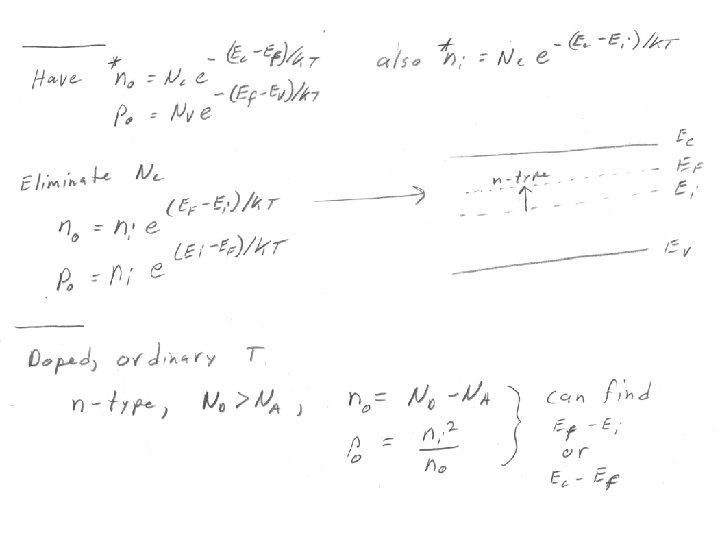 Have *n₀ = N_c e^{-(E_c - E_f)/kT} also *n_i = N_c e^{-(E_c - E_i)/kT}
p₀ = N_v e^{-(E_f - E_v)/kT}
Eliminate N_c
n₀ = n_i e^{(E_F - E_i)/kT}
p₀ = n_i e^{(E_i - E_F)/kT}
E_c
n-type
E_F
E_i
E_v
Doped, ordinary T.
n-type, N_D > N_A, n₀ = N_D - N_A } can find
p₀ = n_i²/n₀
E_f - E_i
or
E_c - E_f